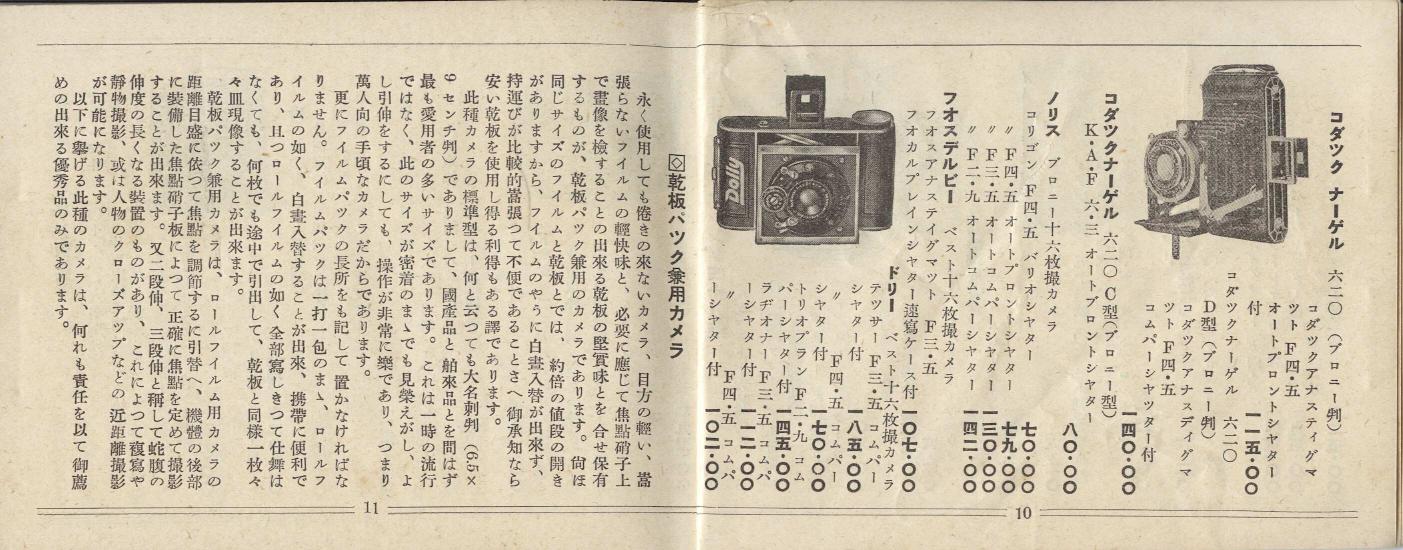 コダツク ナーゲル 六二〇(ブロニー判)
コダツクアナスティグマ
ツト F四・五
オートプロントシャター
付 一一五・〇〇
コダツクナーゲル 六二〇
D型(ブロニー判)
コダツクアナスディグマ
ツト F四・五
コムパーシャツター付
一四〇・〇〇
コダツクナーゲル 六二〇C型(ブロニー型)
K・A・F 六・三 オートプロントシャター
八〇・〇〇
ノリス ブロニー十六枚撮カメラ
コリゴン F四・五 バリオシャター 七〇・〇〇
〃 F四・五 オートプロントシャター 七九・〇〇
〃 F三・五 オートコムパーシャター 一三〇・〇〇
〃 F二・九 オートコムパーシャター 一四二・〇〇
フオスデルビー ベスト十六枚撮カメラ
フオスアナステイグマツト F三・五
フオカルプレインシャター速寫ケース付 一〇七・〇〇
ドリー ベスト十六枚撮カメラ
テツサー F三・五 コムパー
シャター付 一八五・〇〇
〃 F四・五 コムパー
シャター付 一七〇・〇〇
トリオプラン F二・九 コム
パーシャター付 一四五・〇〇
ラヂオナー F三・五 コムパ
ーシャター付 一一二・〇〇
〃 F四・五 コムパ
ーシャター付 一〇二・〇〇
Dolly
10
◇乾板パツク兼用カメラ
永く使用しても倦きの來ないカメラ、目方の輕い、嵩
張らないフイルムの輕快味と、必要に應じて焦點硝子上
で畫像を檢することの出來る乾板の堅實味とを 合せ保有
するものが、乾板パツク兼用のカメラであります。尙ほ
同じサイズのフイルムと乾板とでは、約倍の値段の開き
がありますから、フイルムのやうに白晝入替が出來ず、
持運びが比較的嵩張つて不便であることさへ御承知なら
安い乾板を使用し得る利得もある譯であります。
此種カメラの標準型は、何と云つても大名刺判(6.5×
9 センチ判)でありまして、國產品と舶來品とを問はず
最も愛用者の多いサイズであります。これは一時の流行
ではなく、此のサイズが密着のまゝでも見榮えがし、よ
し引伸をするにしても、操作が非常に樂であり、つまり
萬人向の手頃なカメラだからであります。
更にフイルムパツクの長所をも記して 置かなければな
りません。フイルムパツクは一打一包のまゝ、ロールフ
イルムの如く、白晝入替することが出來、携帶に便利で
あり、且つロールフイルムの如く全部寫しきつて仕舞は
なくても、何枚でも途中で引出して、乾板と同樣一枚々
々皿現像することが出來ます。
乾板パツク兼用カメラは、ロールフイルム用カメラの
距離目盛に依つて焦點を調節するに引替へ、機體の後部
に裝備した焦點硝子板によつて正確に焦點を定めて撮影
することが出來ます。又二段伸、三段伸と稱して蛇腹の
伸度の長くなる裝置のものがあり、これによつて複寫や
靜物撮影、或は人物のクローズアツプなどの 近距離撮影
が可能になります。
以下に擧げる此種のカメラは、何れも責任を以て御薦
めの出來る優秀品のみであります。
11